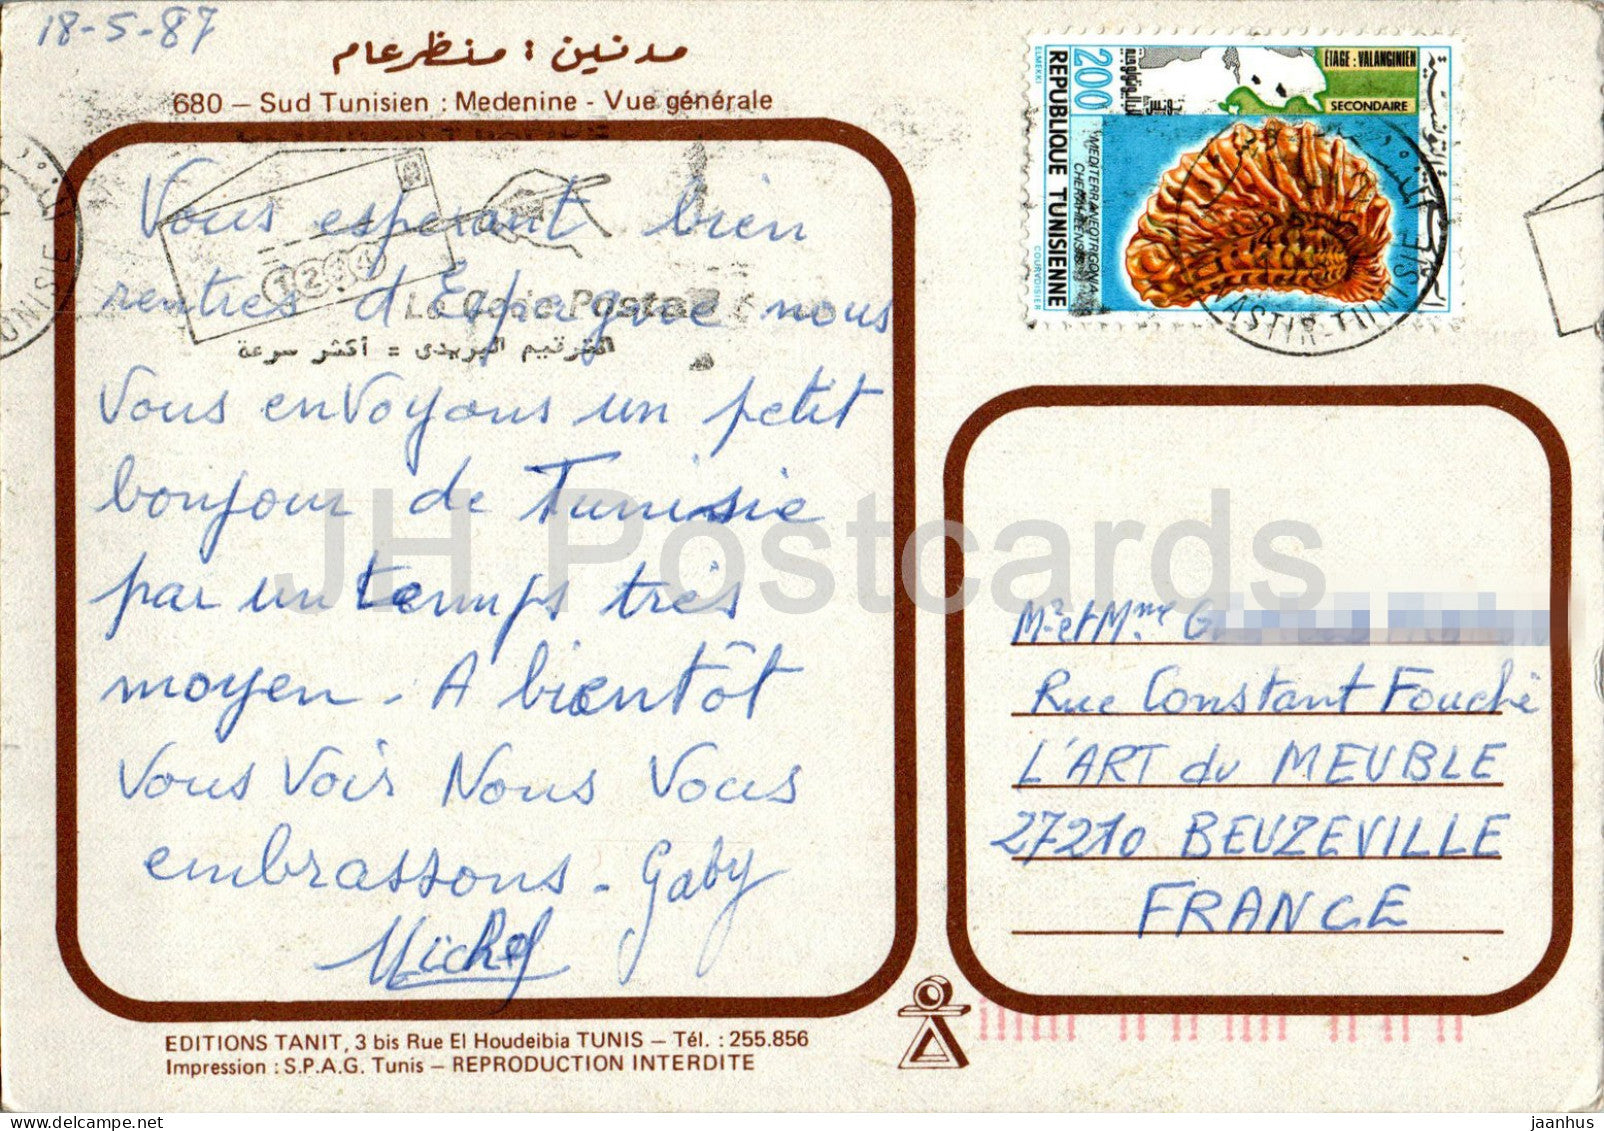 18-5-87
مدنين : منظر عام
680 – Sud Tunisien : Medenine - Vue générale
ETAGE : VALANGINIEN
SECONDAIRE
200
REPUBLIQUE TUNISIENNE
MEDITERRANEOTRIGONIA
CHERAHILENSIS
ELMEKKI
COURVOISIER
MONASTIR-TUNISIE
TUNISIE
1234
Le Code Postal
الترقيم البريدي = أكثر سرعة
Vous esperant bien
rentrés d'Espagne nous
Vous envoyons un petit
bonjour de Tunisie
par un temps très
moyen - A bientôt
Vous Voir Nous Vous
embrassons - Gaby
Michel
Mr et Mme G
Rue Constant Fouché
L'ART du MEUBLE
27210 BEUZEVILLE
FRANCE
JH Postcards
EDITIONS TANIT, 3 bis Rue El Houdeibia TUNIS – Tél. : 255.856
Impression : S.P.A.G. Tunis – REPRODUCTION INTERDITE
delcampe.net
jaanhus